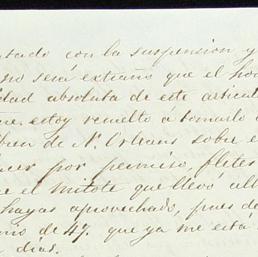 ptado con la suspension y
no será extraño que el ho
dad absoluta de este articul
ue estoy resuelto á tomarlo á
iben de N. Orleans sobre e
cer por permiso, fletes
e el mitote que llevó all
hayas aprovechado, pues de
mo de 47. que ya me está
dias.